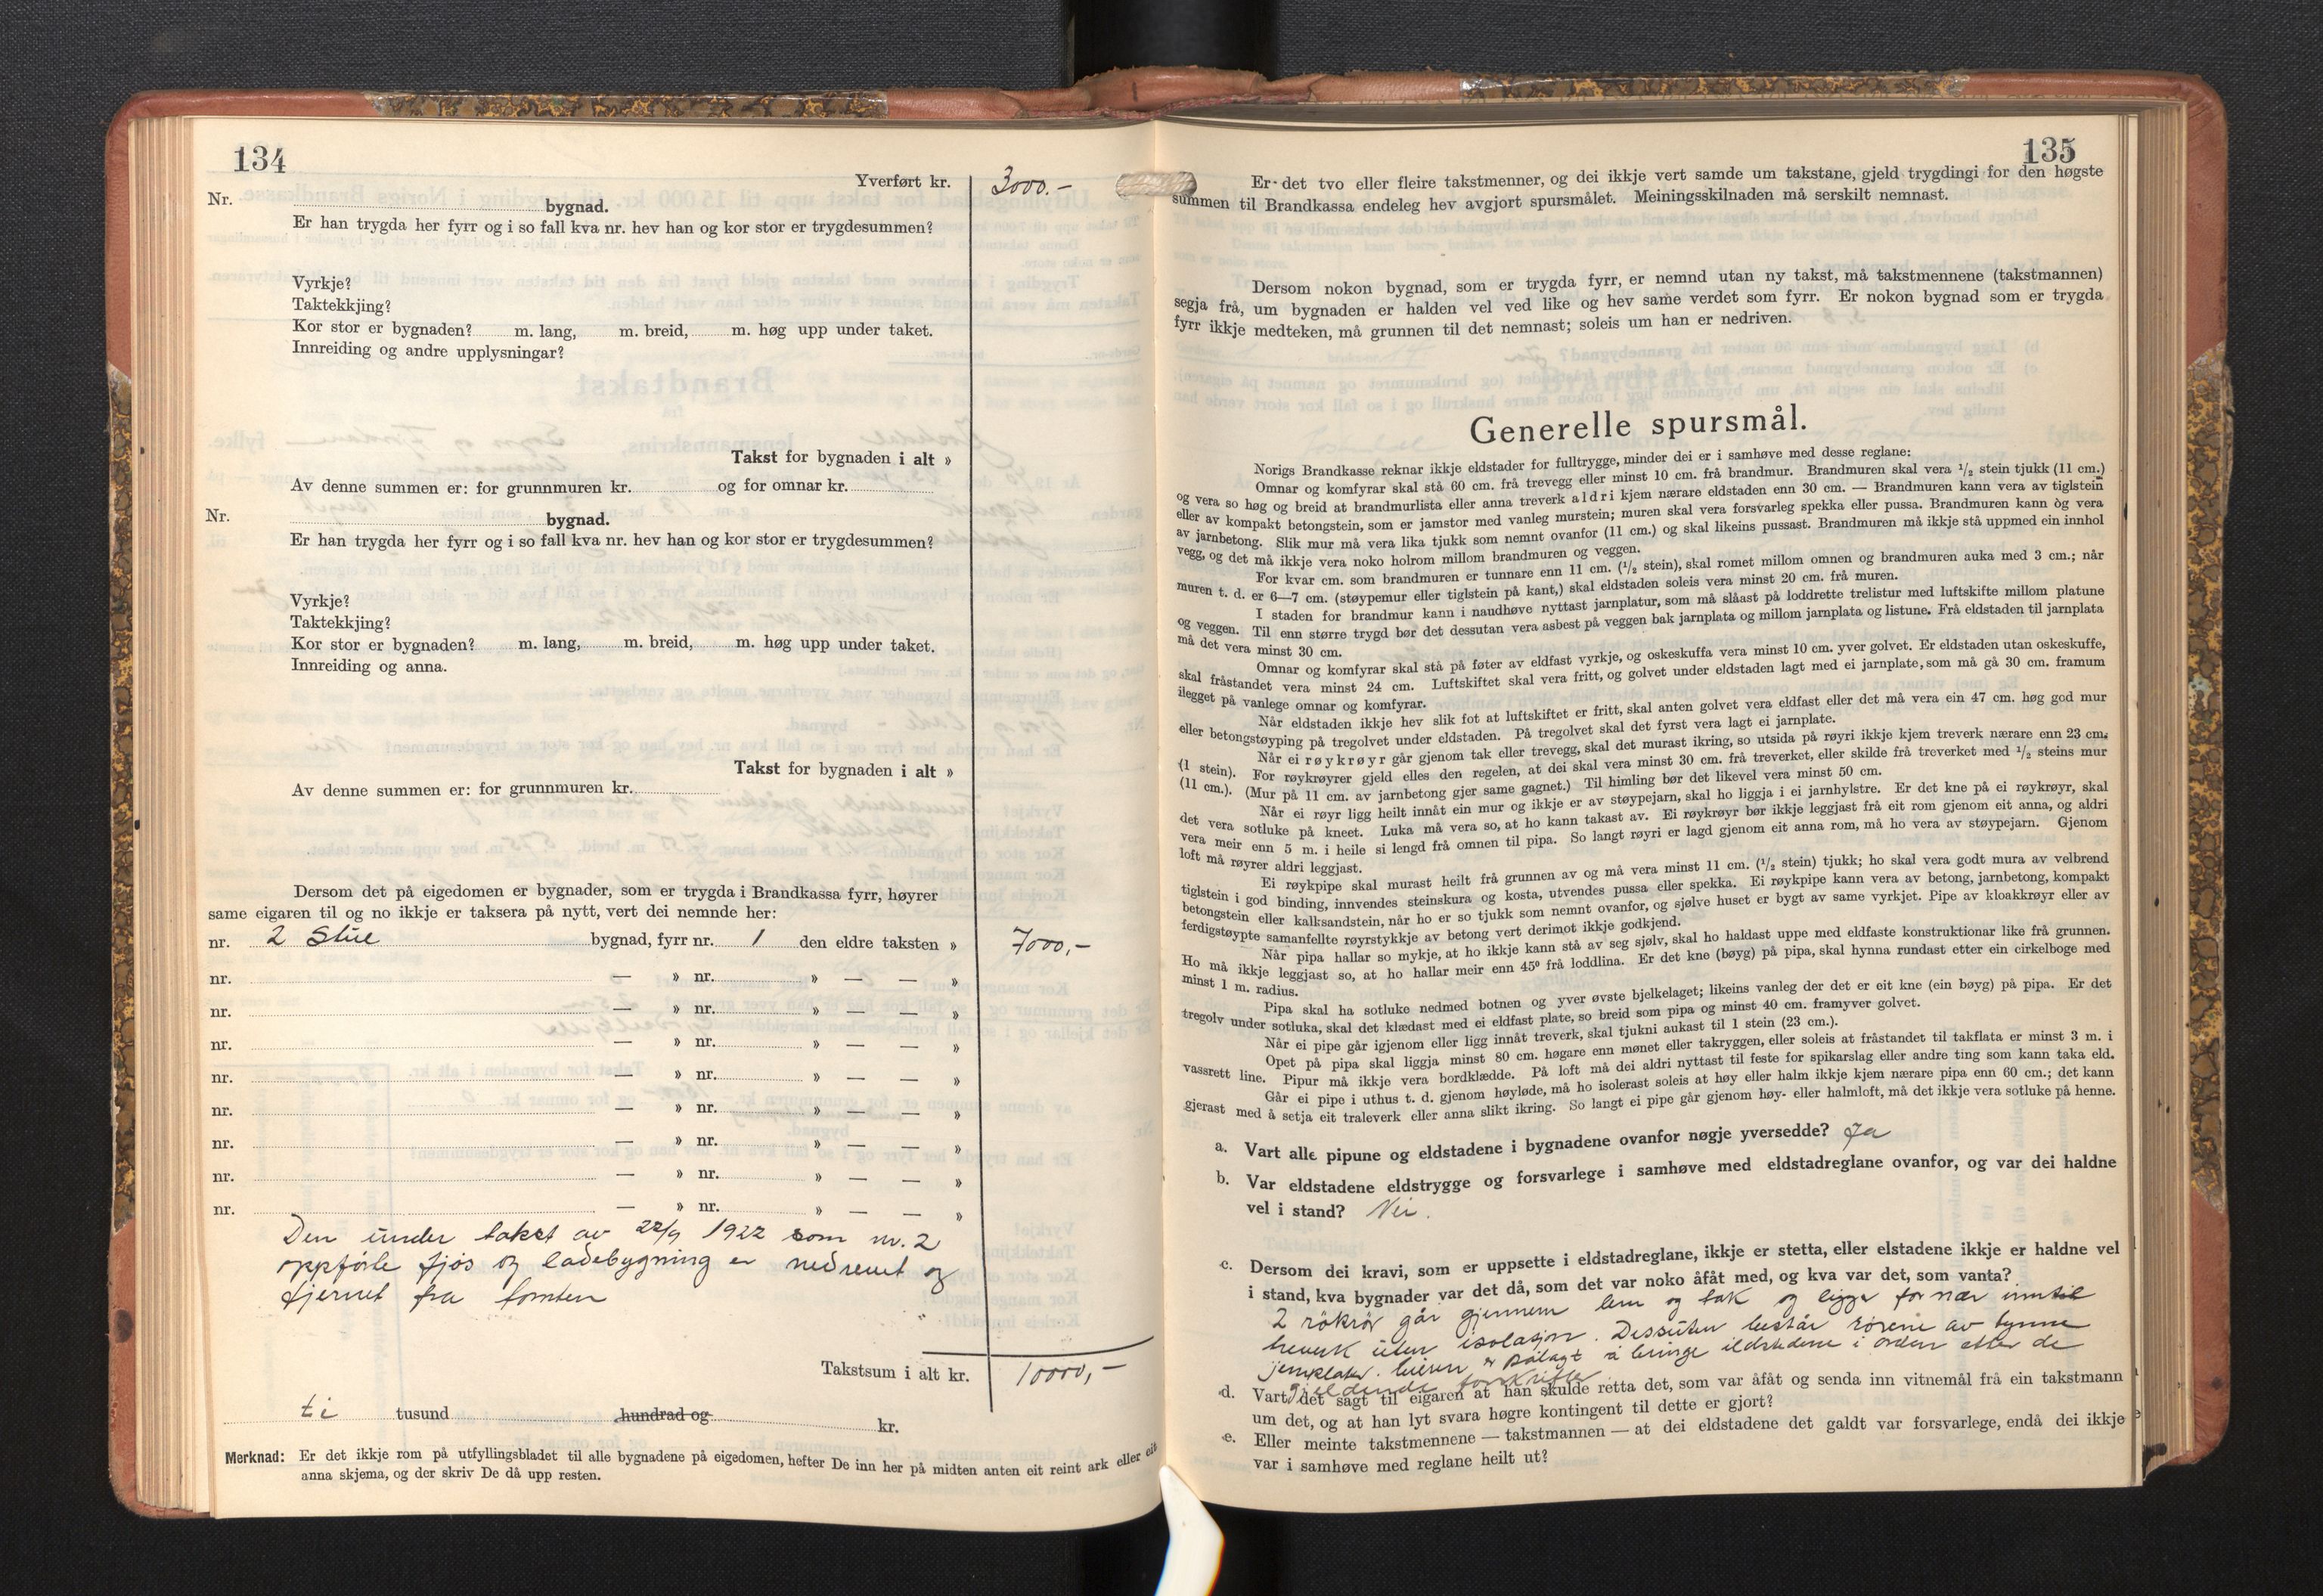 134
Yverført kr. 3000.-
Nr. bygnad.
Er han trygda her fyrr og i so fall kva nr. hev han og kor stor er trygdesummen?
Vyrkje?
Taktekkjing?
Kor stor er bygnaden? m. lang, m. breid, m. høg upp under taket.
Innreiding og andre upplysningar?
Takst for bygnaden i alt »
Av denne summen er: for grunnmuren kr. og for omnar kr.
Nr. bygnad.
Er han trygda her fyrr og i so fall kva nr. hev han og kor stor er trygdesummen?
Vyrkje?
Taktekkjing?
Kor stor er bygnaden? m. lang, m. breid, m. høg upp under taket.
Innreiding og anna.
Takst for bygnaden i alt »
Av denne summen er: for grunnmuren kr.
Dersom det på eigedomen er bygnader, som er trygda i Brandkassa fyrr, høyrer
same eigaren til og no ikkje er taksera på nytt, vert dei nemnde her:
nr. 2 Stue bygnad, fyrr nr. 1 den eldre taksten » 7000,-
nr. — » nr. » — — »
nr. — » nr. » — — »
nr. — » nr. » — — »
nr. — » nr. » — — »
nr. — » nr. » — — »
nr. — » nr. » — — »
nr. — » nr. » — — »
nr. — » nr. » — — »
Den under takst av 22/9 1922 som nr. 2
oppførte fjøs og ladebygning er nedrevet og
fjernet fra tomten
Takstsum i alt kr. 10000,-
ti tusund hundrad og kr.
Merknad: Er det ikkje rom på utfyllingsbladet til alle bygnadene på eigedomen, hefter De inn her på midten anten eit reint ark eller eit
anna skjema, og der skriv De då upp resten.
135
Er det tvo eller fleire takstmenner, og dei ikkje vert samde um takstane, gjeld trygdingi for den høgste
summen til Brandkassa endeleg hev avgjort spursmålet. Meiningsskilnaden må serskilt nemnast.
Dersom nokon bygnad, som er trygda fyrr, er nemnd utan ny takst, må takstmennene (takstmannen)
segja frå, um bygnaden er halden vel ved like og hev same verdet som fyrr. Er nokon bygnad som er trygda
fyrr ikkje medteken, må grunnen til det nemnast; soleis um han er nedriven.
Generelle spursmål.
Norigs Brandkasse reknar ikkje eldstader for fulltrygge, minder dei er i samhøve med desse reglane:
Omnar og komfyrar skal stå 60 cm. frå trevegg eller minst 10 cm. frå brandmur. Brandmuren skal vera 1/2 stein tjukk (11 cm.)
og vera so høg og breid at brandmurlista eller anna treverk aldri kjem nærare eldstaden enn 30 cm. — Brandmuren kann vera av tiglstein
eller av kompakt betongstein, som er jamstor med vanleg murstein; muren skal vera forsvarleg spekka eller pussa. Brandmuren kann òg vera
av jarnbetong. Slik mur må vera lika tjukk som nemnt ovanfor (11 cm.) og skal likeins pussast. Brandmuren må ikkje stå uppmed ein innhol
vegg, og det må ikkje vera noko holrom millom brandmuren og veggen.
For kvar cm. som brandmuren er tunnare enn 11 cm. (1/2 stein), skal romet millom omnen og brandmuren auka med 3 cm.; når
muren t. d. er 6—7 cm. (støypemur eller tiglstein på kant,) skal eldstaden soleis vera minst 20 cm. frå muren.
I staden for brandmur kann i naudhøve nyttast jarnplatur, som må slåast på loddrette trelistur med luftskifte millom platune
og veggen. Til enn større trygd bør det dessutan vera asbest på veggen bak jarnplata og millom jarnplata og listune. Frå eldstaden til jarnplata
må det vera minst 30 cm.
Omnar og komfyrar skal stå på føter av eldfast vyrkje, og oskeskuffa vera minst 10 cm. yver golvet. Er eldstaden utan oskeskuffe,
skal fråstandet vera minst 24 cm. Luftskiftet skal vera fritt, og golvet under eldstaden lagt med ei jarnplate, som må gå 30 cm. framum
ilegget på vanlege omnar og komfyrar.
Når eldstaden ikkje hev slik fot at luftskiftet er fritt, skal anten golvet vera eldfast eller det må vera ein 47 cm. høg god mur
eller betongstøyping på tregolvet under eldstaden. På tregolvet skal det fyrst vera lagt ei jarnplate.
Når ei røykrøyr går gjenom tak eller trevegg, skal det murast ikring, so utsida på røyri ikkje kjem treverk nærare enn 23 cm.
(1 stein). For røykrøyrer gjeld elles den regelen, at dei skal vera minst 30 cm. frå treverket, eller skilde frå treverket med 1/2 steins mur
(11 cm.). (Mur på 11 cm. av jarnbetong gjer same gagnet.) Til himling bør det likevel vera minst 50 cm.
Når ei røyr ligg heilt innåt ein mur og ikkje er av støypejarn, skal ho liggja i ei jarnhylstre. Er det kne på ei røykrøyr, skal
det vera sotluke på kneet. Luka må vera so, at ho kann takast av. Ei røykrøyr bør ikkje leggjast frå eit rom gjenom eit anna, og aldri
vera meir enn 5 m. i heile si lengd frå omnen til pipa. So langt røyri er lagd gjenom eit anna rom, må ho vera av støypejarn. Gjenom
loft må røyrer aldri leggjast.
Ei røykpipe skal murast heilt frå grunnen av og må vera minst 11 cm. (1/2 stein) tjukk; ho skal vera godt mura av velbrend
tiglstein i god binding, innvendes steinskura og kosta, utvendes pussa eller spekka. Ei røykpipe kann vera av betong, jarnbetong, kompakt
betongstein eller kalksandstein, når ho er so tjukk som nemnt ovanfor, og sjølve huset er bygt av same vyrkjet. Pipe av kloakkrøyr eller av
ferdigstøypte samanfellte røyrstykkje av betong vert derimot ikkje godkjend.
Når pipa hallar so mykje, at ho ikkje kann stå av seg sjølv, skal ho haldast uppe med eldfaste konstruktionar like frå grunnen.
Ho må ikkje leggjast so, at ho hallar meir enn 45° frå loddlina. Er det kne (bøyg) på pipa, skal hynna rundast etter ein cirkelboge med
minst 1 m. radius.
Pipa skal ha sotluke nedmed botnen og yver øvste bjelkelaget; likeins vanleg der det er eit kne (ein bøyg) på pipa. Er det
tregolv under sotluka, skal det klædast med ei eldfast plate, so breid som pipa og minst 40 cm. framyver golvet.
Når ei pipe går igjenom eller ligg innåt treverk, skal tjukni aukast til 1 stein (23 cm.).
Opet på pipa skal liggja minst 80 cm. høgare enn mønet eller takryggen, eller soleis at fråstandet til takflata er minst 3 m. i
vassrett line. Pipur må ikkje vera bordklædde. På loft må dei aldri nyttast til feste for spikarslag eller andre ting som kann taka eld.
Går ei pipe i uthus t. d. gjenom høyløde, må ho isolerast soleis at høy eller halm ikkje kjem nærare pipa enn 60 cm.; det kann
gjerast med å setja eit traleverk eller anna slikt ikring. So langt ei pipe går gjenom høy- eller halmloft, må det ikkje vera sotluke på henne.
a. Vart alle pipune og eldstadene i bygnadene ovanfor nøgje yversedde? Ja
b. Var eldstadene eldstrygge og forsvarlege i samhøve med eldstadreglane ovanfor, og var dei haldne
vel i stand? Nei.
c. Dersom dei kravi, som er uppsette i eldstadreglane, ikkje er stetta, eller elstadene ikkje er haldne vel
i stand, kva bygnader var det då, som det var noko åfåt med, og kva var det, som vanta?
2 rökrör går gjennem lem og tak og ligger for nær inntil
treverk uten isolasjon. Dessuten består rörene av tynne
jernplater. Eieren er pålagt å bringe ildstedene i orden etter de
gjeldende forskrifter
d. Vart det sagt til eigaren at han skulde retta det, som var åfåt og senda inn vitnemål frå ein takstmann
um det, og at han lyt svara høgre kontingent til dette er gjort?
e. Eller meinte takstmennene — takstmannen — at dei eldstadene det galdt var forsvarlege, endå dei ikkje
var i samhøve med reglane heilt ut?